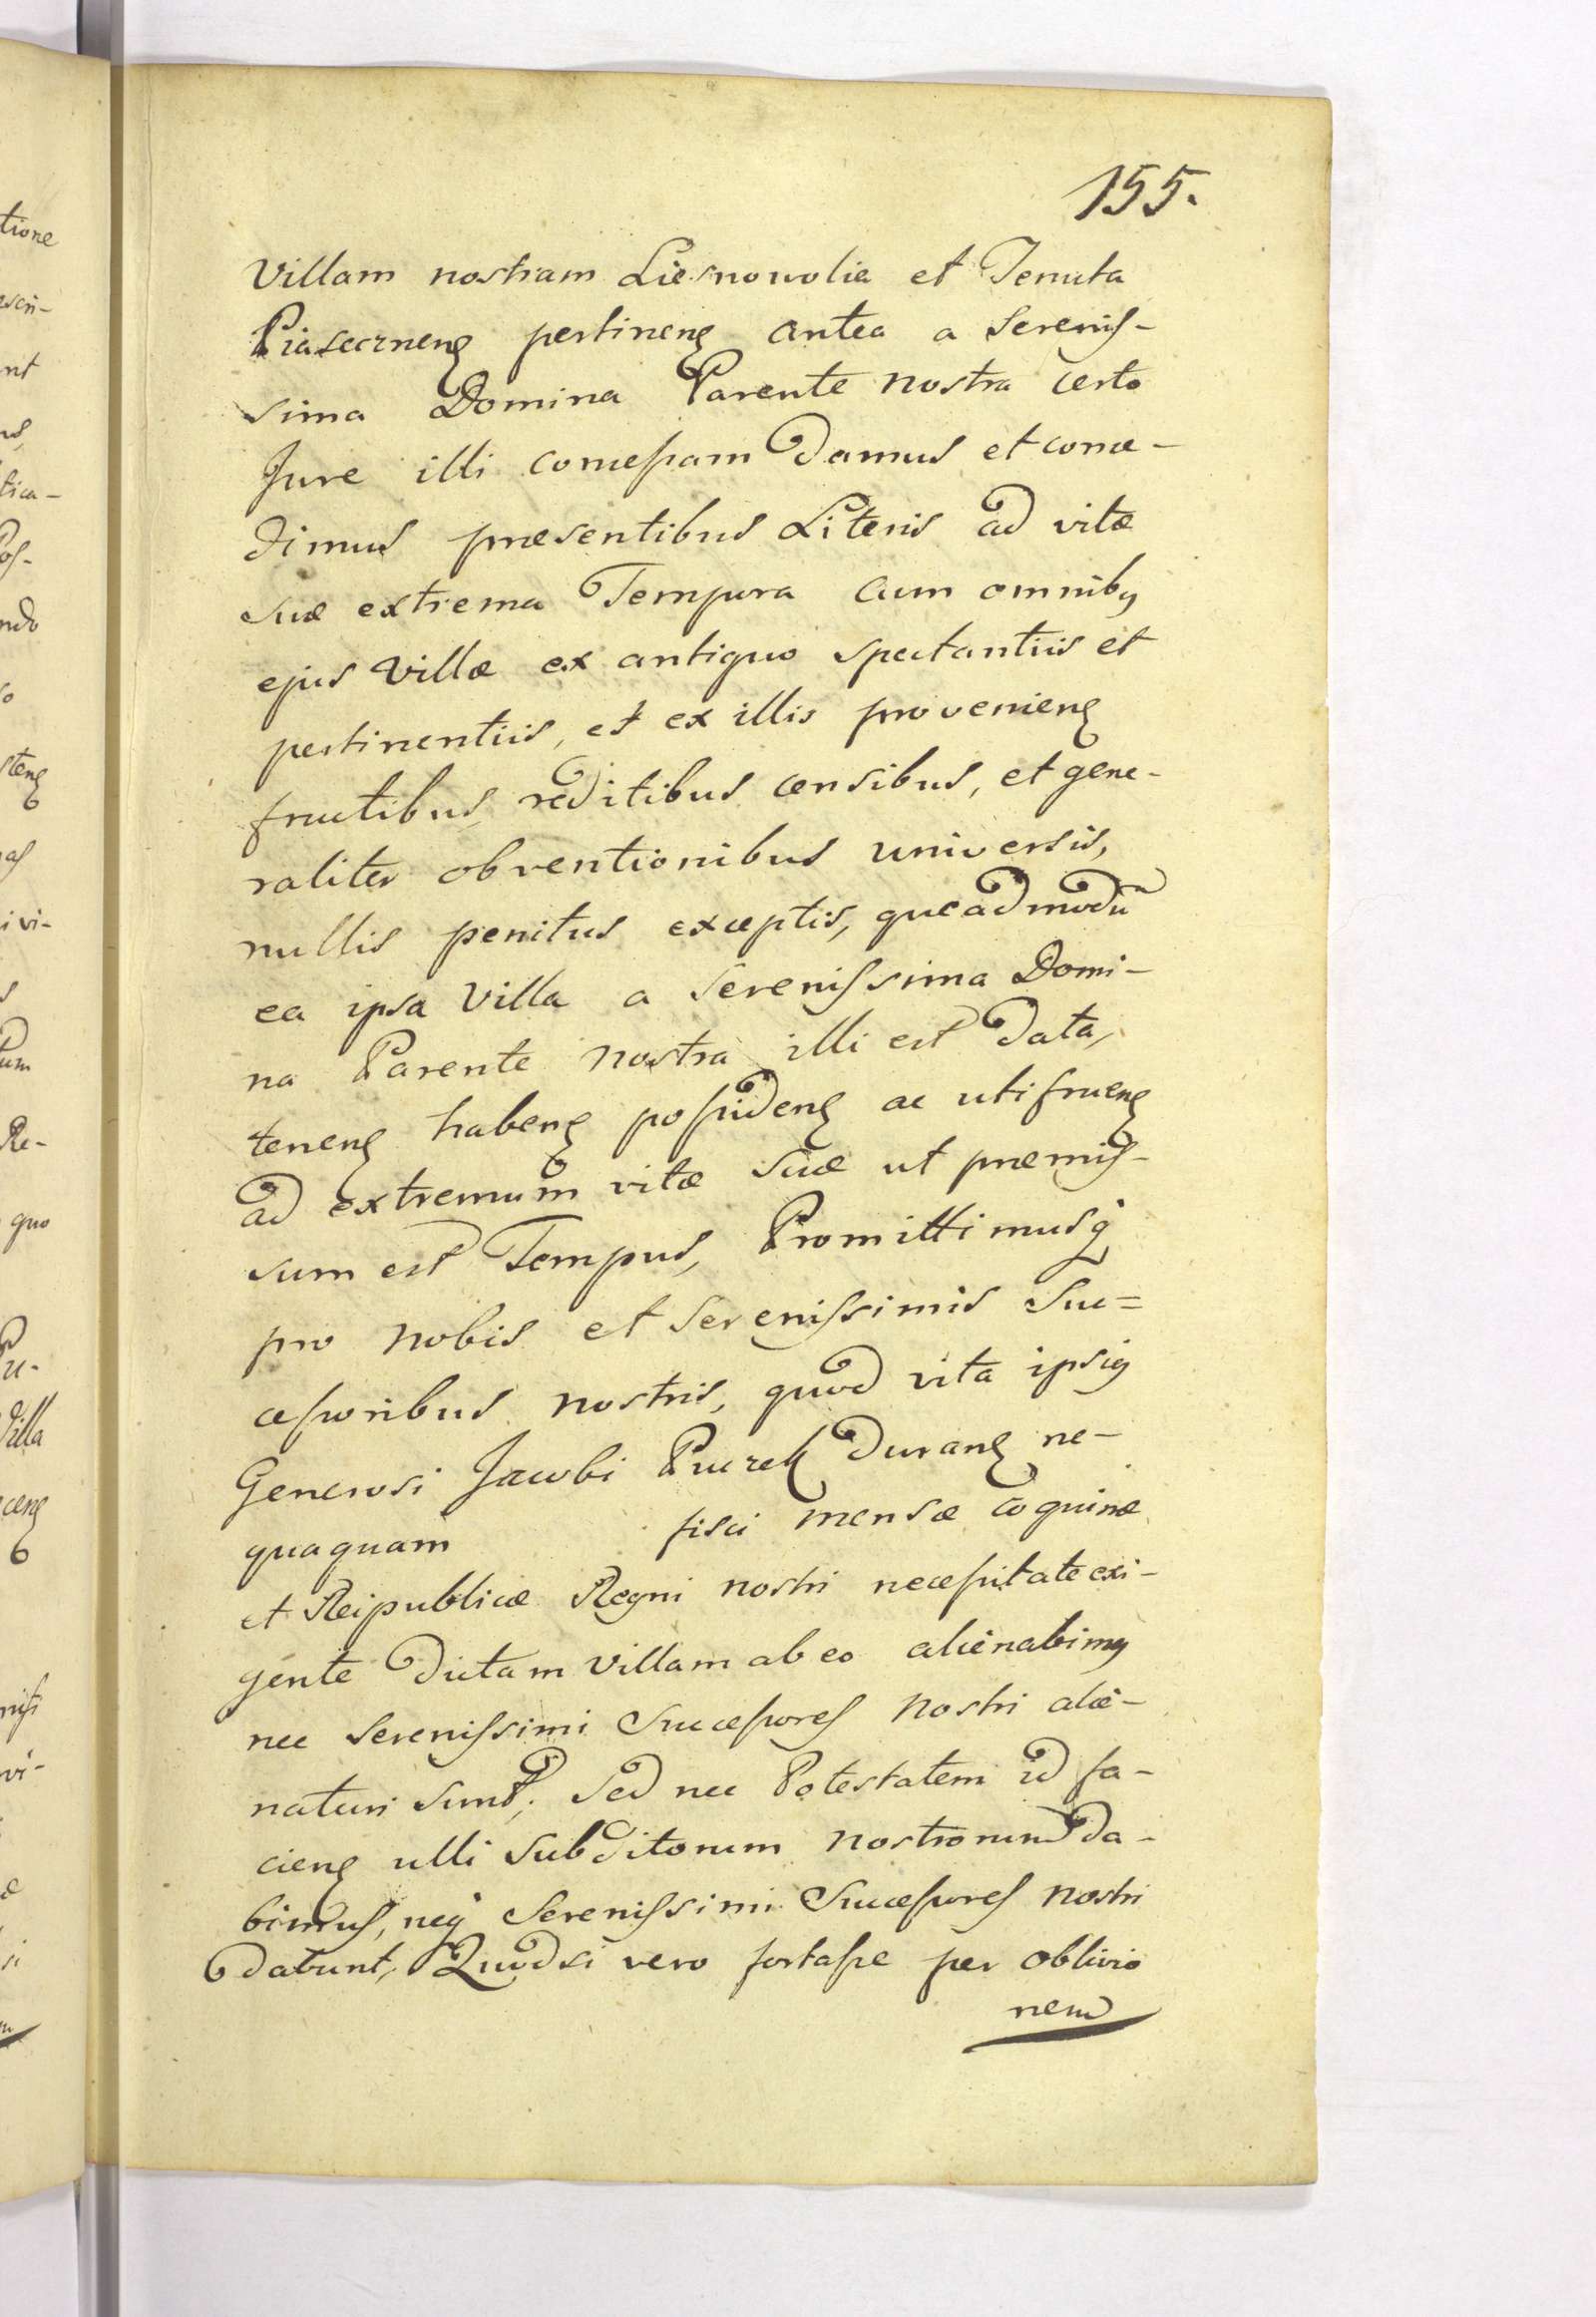 155.
Villam nostram Liesnowolia et Tenuta
Piasecznenꝫ pertinenꝫ antea a Sereniſ-
sima Domina Parente nostra certo
Jure illi conceſsam Damus et conce-
dimus præsentibus Literis ad vitæ
suæ extrema Tempora cum omnibꝫ
ejus Villæ ex antiquo spectantiis et
pertinentiis, et ex illis provenienꝫ
fructibus, reditibus censibus, et gene-
raliter obventionibus universis,
nullis penitus exceptis, queadmodū
ea ipsa Villa a Sereniſsima Domi-
na Parente nostra illi est Data,
tenenꝫ habenꝫ poſsidenꝫ ac utifruenꝫ
ad extremum vitæ suæ ut præmiſ-
sum est Tempus, Promittimusq̃
pro nobis et Sereniſsimis Suc=
ceſsoribus nostris, quod vita ipsiꝫ
Generosi Jacobi Pucrek Duranꝫ ne-
quaquam fisci mensæ coquinæ
et Reipublicæ Regni nostri neceſsitate exi-
gente Dictam Villam ab eo alienabimꝫ
nec Sereniſsimi Succeſsoreſ Nostri alie-
naturi sunt; Sed nec Potestatem id fa-
cienꝫ ulli Subditorum nostrorum da-
bimuſ, neq̃ Sereniſsimi Succeſsoreſ nostri
Dabunt, Quodsi vero fortaſse per oblivio
nem
tione
nt
tica-
ndo
ivi-
Re-
quo
Villa